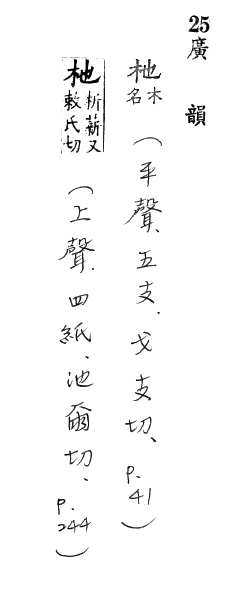 25 廣韻
杝 木名 (平聲、五支、弋支切、p. 41)
杝 析薪又敕氏切 (上聲、四紙、池爾切、p. 244)